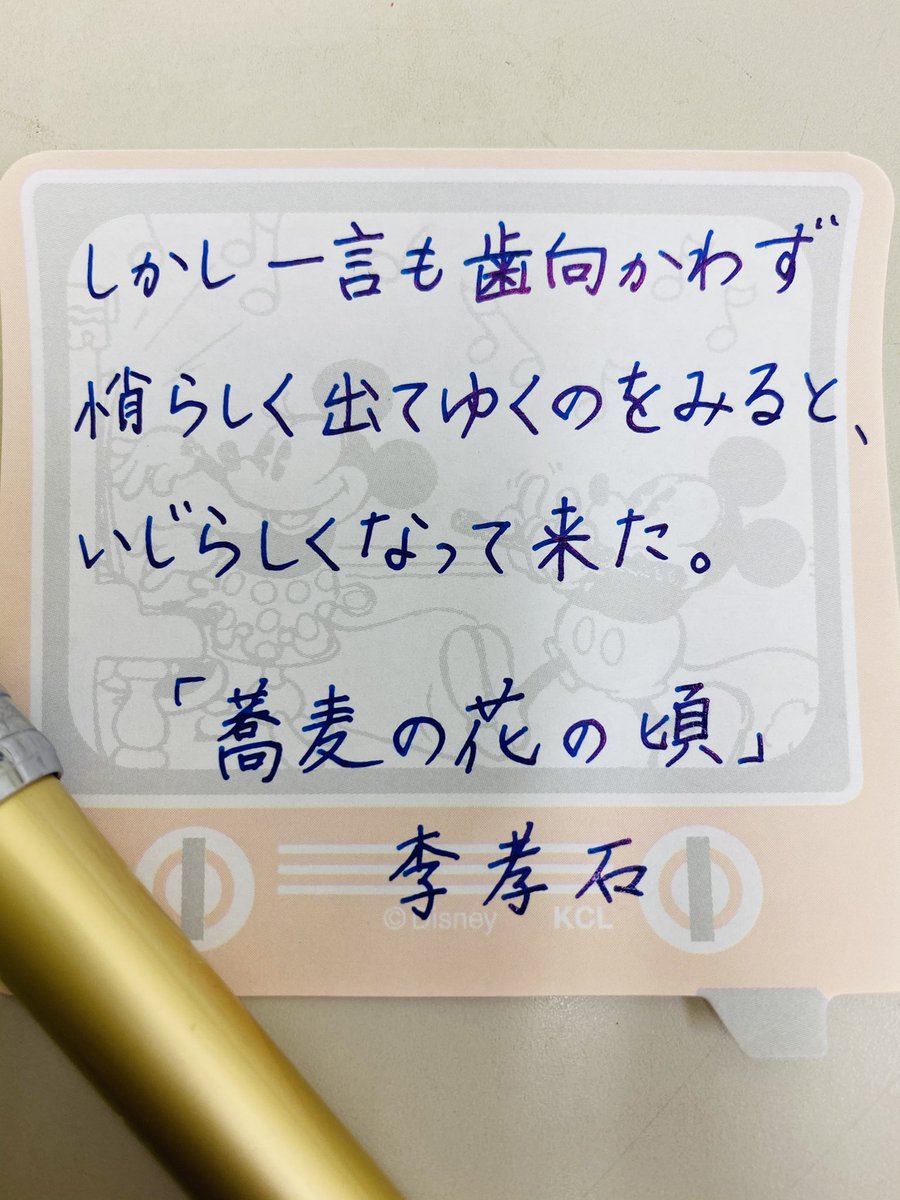 しかし一言も歯向かわず
悄らしく出てゆくのをみると、
いじらしくなって来た。
「蕎麦の花の頃」
李孝石
© Disney KCL